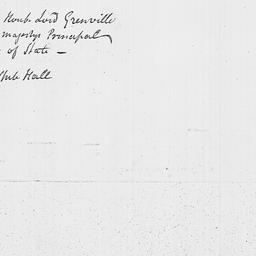 Honb. Lord Grenville
majestys Principal
of State —
Hall